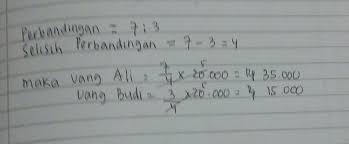 Perbandingan = 7 : 3
Selisih Perbandingan = 7 - 3 = 4
maka uang Ali = 7/4 x 20.000 = Rp 35.000
uang Budi = 3/4 x 20.000 = Rp 15.000